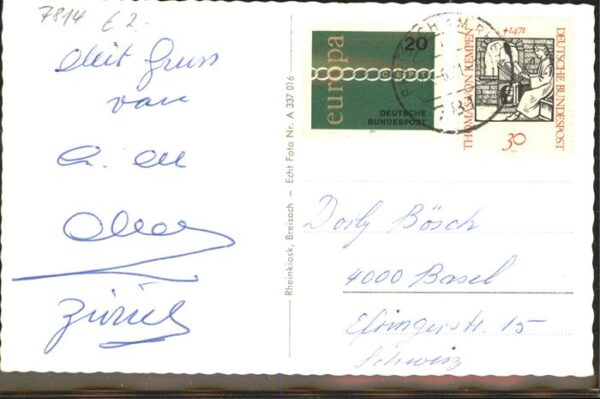 7814 € 2.-
Mit Gruss
von
Zürich
Rheinkiosk, Breisach — Echt Foto Nr. A 337 016
europa
20
DEUTSCHE
BUNDESPOST
+1471
THOMAS VON KEMPEN
DEUTSCHE BUNDESPOST
30
Dorly Bösch
4000 Basel
Efringerstr. 15
Schweiz